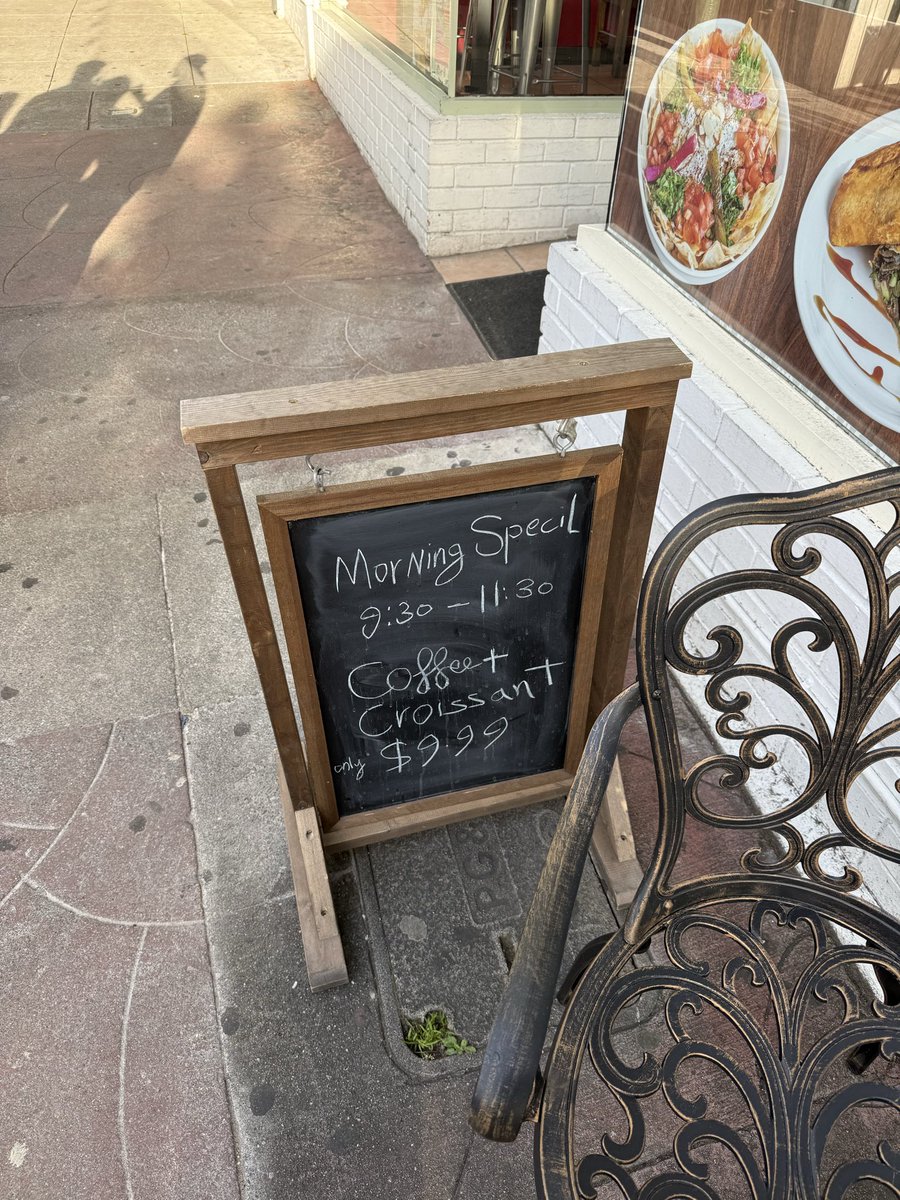 Morning Specil
9:30 - 11:30
Coffee +
Croissant
only $999
PG&E